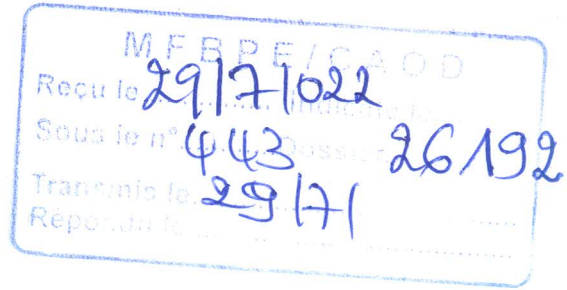 MFBPE/CAOD
Reçu le 29/7/022
Sous le n° 443 Dossier 26192
Transmis le 29/7/
Répondu le